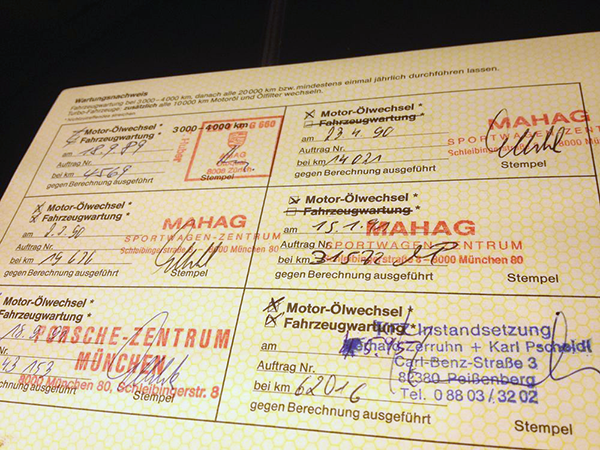 Wartungsnachweis
Fahrzeugwartung bei 3000-4000 km, danach alle 20 000 km bzw. mindestens einmal jährlich durchführen lassen.
Turbo-Fahrzeuge: zusätzlich alle 10 000 km Motoröl und Ölfilter wechseln.
Motor-Ölwechsel *
Fahrzeugwartung *
3000-4000 km
am 18.9.89
Auftrag Nr.
bei km 4569
gegen Berechnung ausgeführt
Stempel
Motor-Ölwechsel *
Fahrzeugwartung *
am 23.4.90
Auftrag Nr.
bei km 14021
gegen Berechnung ausgeführt
MAHAG
SPORTWAGEN-ZENTRUM
Schleibingerstraße 8000 München 80
Stempel
Motor-Ölwechsel *
Fahrzeugwartung *
am
Auftrag Nr.
bei km
gegen Berechnung ausgeführt
MAHAG
SPORTWAGEN-ZENTRUM
Schleibingerstraße 8000 München 80
Stempel
Motor-Ölwechsel *
Fahrzeugwartung *
am
Auftrag Nr.
bei km
gegen Berechnung ausgeführt
MAHAG
SPORTWAGEN-ZENTRUM
Schleibingerstraße 8 - 8000 München 80
Stempel
Motor-Ölwechsel *
Fahrzeugwartung *
Nr.
43 153
gegen Berechnung ausgeführt
PORSCHE-ZENTRUM
MÜNCHEN
8000 München 80, Schleibingerstr. 8
Stempel
Motor-Ölwechsel *
Fahrzeugwartung *
am
Auftrag Nr.
bei km 62016
gegen Berechnung ausgeführt
KFZ-Instandsetzung
Zerruhn + Karl Pscheidl
Carl-Benz-Straße 3
82380 Peißenberg
Tel. 0 88 03 / 32 02
Stempel